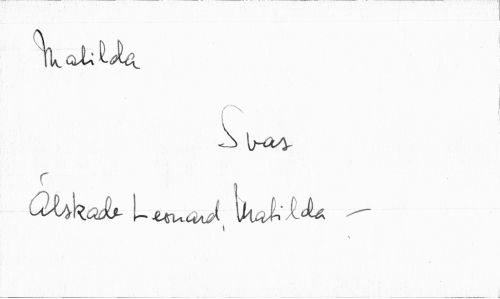 Matilda
Svas
Álskade Leonard, Matilda –